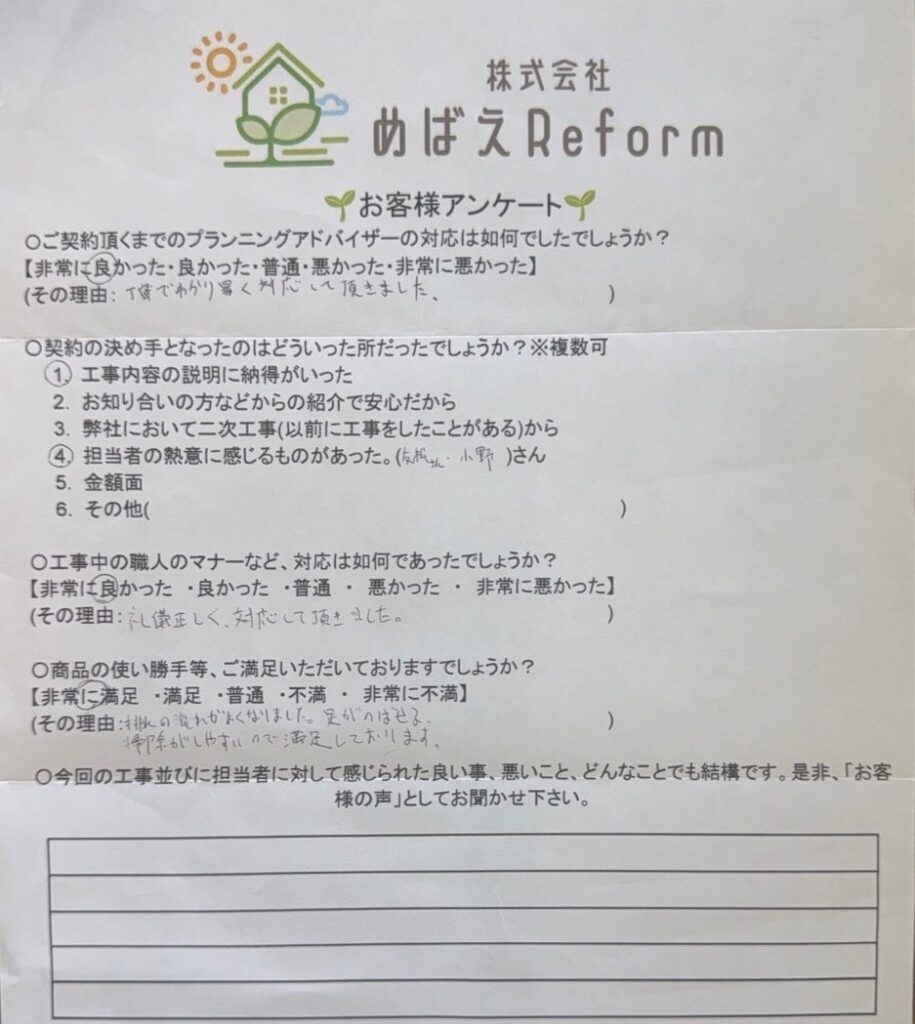 株式会社
めばえReform
お客様アンケート
〇ご契約頂くまでのプランニングアドバイザーの対応は如何でしたでしょうか？
【非常に良かった・良かった・普通・悪かった・非常に悪かった】
(その理由： 丁寧でわかり易く対応して頂きました、 )
〇契約の決め手となったのはどういった所だったでしょうか？※複数可
1. 工事内容の説明に納得がいった
2. お知り合いの方などからの紹介で安心だから
3. 弊社において二次工事(以前に工事をしたことがある)から
4. 担当者の熱意に感じるものがあった。( さん・小野 )さん
5. 金額面
6. その他( )
〇工事中の職人のマナーなど、対応は如何であったでしょうか？
【非常に良かった ・良かった ・普通 ・ 悪かった ・ 非常に悪かった】
(その理由：礼儀正しく、対応して頂きました。 )
〇商品の使い勝手等、ご満足いただいておりますでしょうか？
【非常に満足 ・満足 ・普通 ・不満 ・ 非常に不満】
(その理由：排水の流れがよくなりました。足がのばせる、 )
掃除がしやすいので満足しております、
〇今回の工事並びに担当者に対して感じられた良い事、悪いこと、どんなことでも結構です。是非、「お客
様の声」としてお聞かせ下さい。